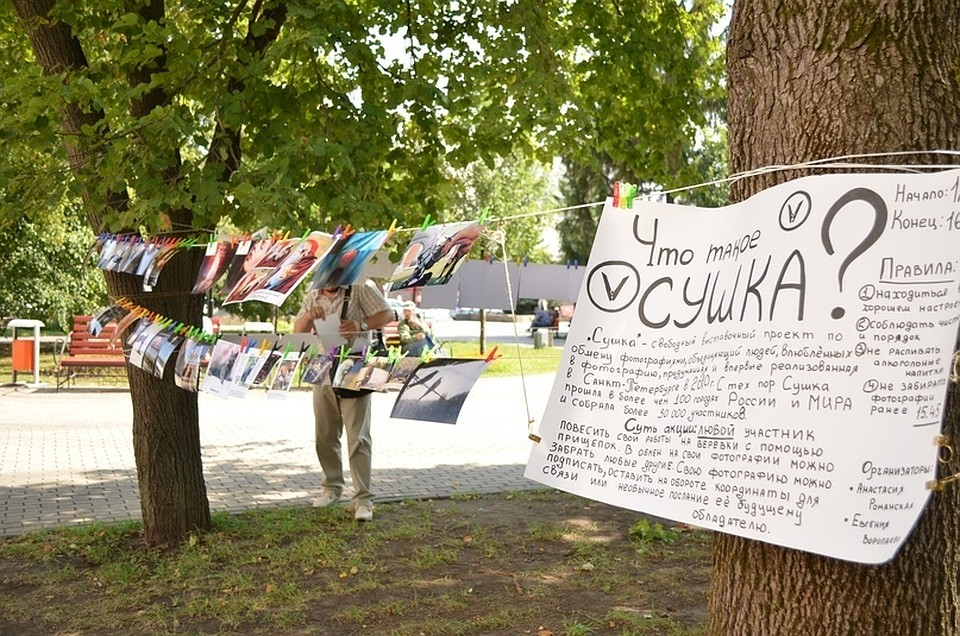 Что такое
СУШКА?
„Сушка"- свободный выставочный проект по
обмену фотографиями, объединяющий людей, влюблённых
в фотографию, придуманная и впервые реализованная
в Санкт-Петербурге в 2010г. С тех пор Сушка
прошла в более чем 100 городах России и МИРА
и собрала более 30 000 участников.
Суть акции: ЛЮБОЙ участник
ПОВЕСИТЬ СВОИ РАБОТЫ НА ВЕРЕВКИ С ПОМОЩЬЮ
ПРИЩЕПОК. В ОБМЕН НА СВОИ ФОТОГРАФИИ МОЖНО
ЗАБРАТЬ ЛЮБЫЕ ДРУГИЕ. СВОЮ ФОТОГРАФИЮ МОЖНО
ПОДПИСАТЬ, ОСТАВИТЬ НА ОБОРОТЕ КООРДИНАТЫ ДЛЯ
СВЯЗИ ИЛИ НЕОБЫЧНОЕ ПОСЛАНИЕ ЕЁ БУДУЩЕМУ
ОБЛАДАТЕЛЮ.
Начало:
Конец:
Правила:
① Находиться в
хорошем
② Соблюдать
и порядок
③ Не распивать
алкогольные
напитки
④ Не забирать
фотографии
ранее 15.45
Организаторы:
• Анастасия
Романская
• Евгения